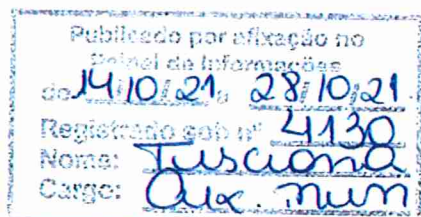 Publicado por afixação no
Painel de Informações
de 14/10/21 a 28/10/21.
Registrado sob nº 4130
Nome: Tusciana
Cargo: Aux. mun